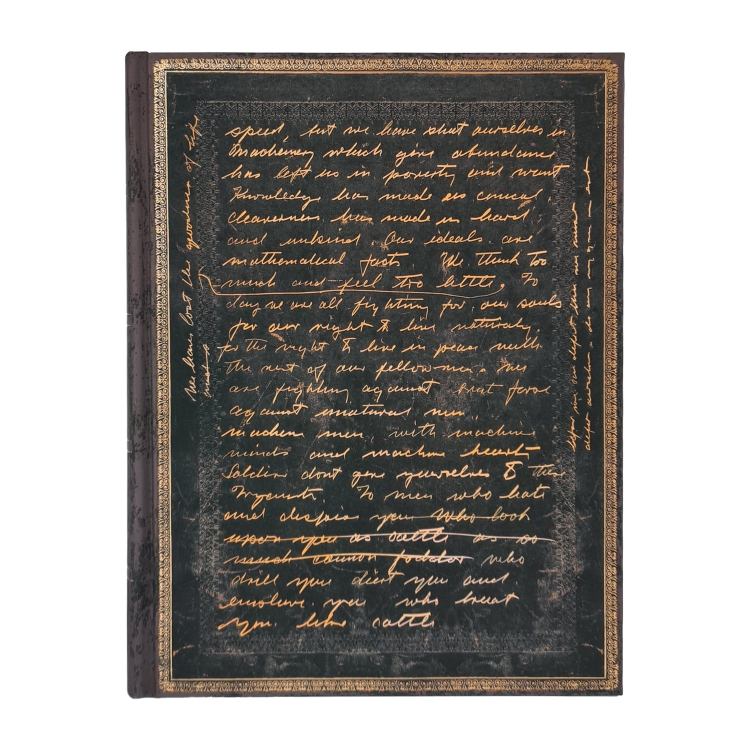 speed, but we have shut ourselves in
Machinery which give abundance
has left us in poverty and want
Knowledge has made us
cleverness has made us hard
and unkind. Our ideals are
mathematical facts We think too
much and feel too little. To
day we are all fighting for our souls
for our right to live naturally.
for the right to live in peace with
the rest of our fellow men. We
are fighting against brut force
against unatural men
machine men with machine
minds and machine hearts
Soldier dont give yourselves to these
To men who hate
and despise you who look
upon you as cattle as so
much cannon fodder who
drill you diet you and
you who treat
you like cattle
We have lost the of life